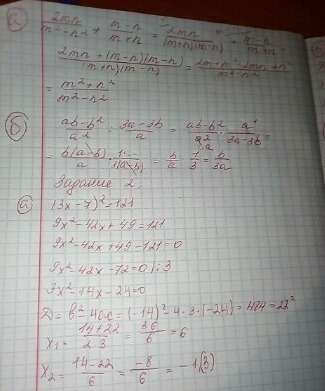 а) 2mn/(m²-n²) + (m-n)/(m+n) = 2mn/((m+n)(m-n)) + (m-n)/(m+n) =
(2mn+(m-n)(m-n))/((m+n)(m-n)) = (2mn+m²-2mn+n²)/(m²-n²)
= (m²+n²)/(m²-n²)
б) (ab-b²)/a² : (3a-3b)/a = (ab-b²)/a² · a/(3a-3b) =
= b(a-b)/a · 1/3(a-b) = b/a · 1/3 = b/3a
Задание 2
а) (3x-7)²=121
9x²-42x+49=121
9x²-42x+49-121=0
9x²-42x-72=0 |:3
3x²-14x-24=0
D=b²-4ac=(-14)²-4·3·(-24)=484=22²
x₁=(14+22)/(2·3)=36/6=6
x₂=(14-22)/6=-8/6=-1